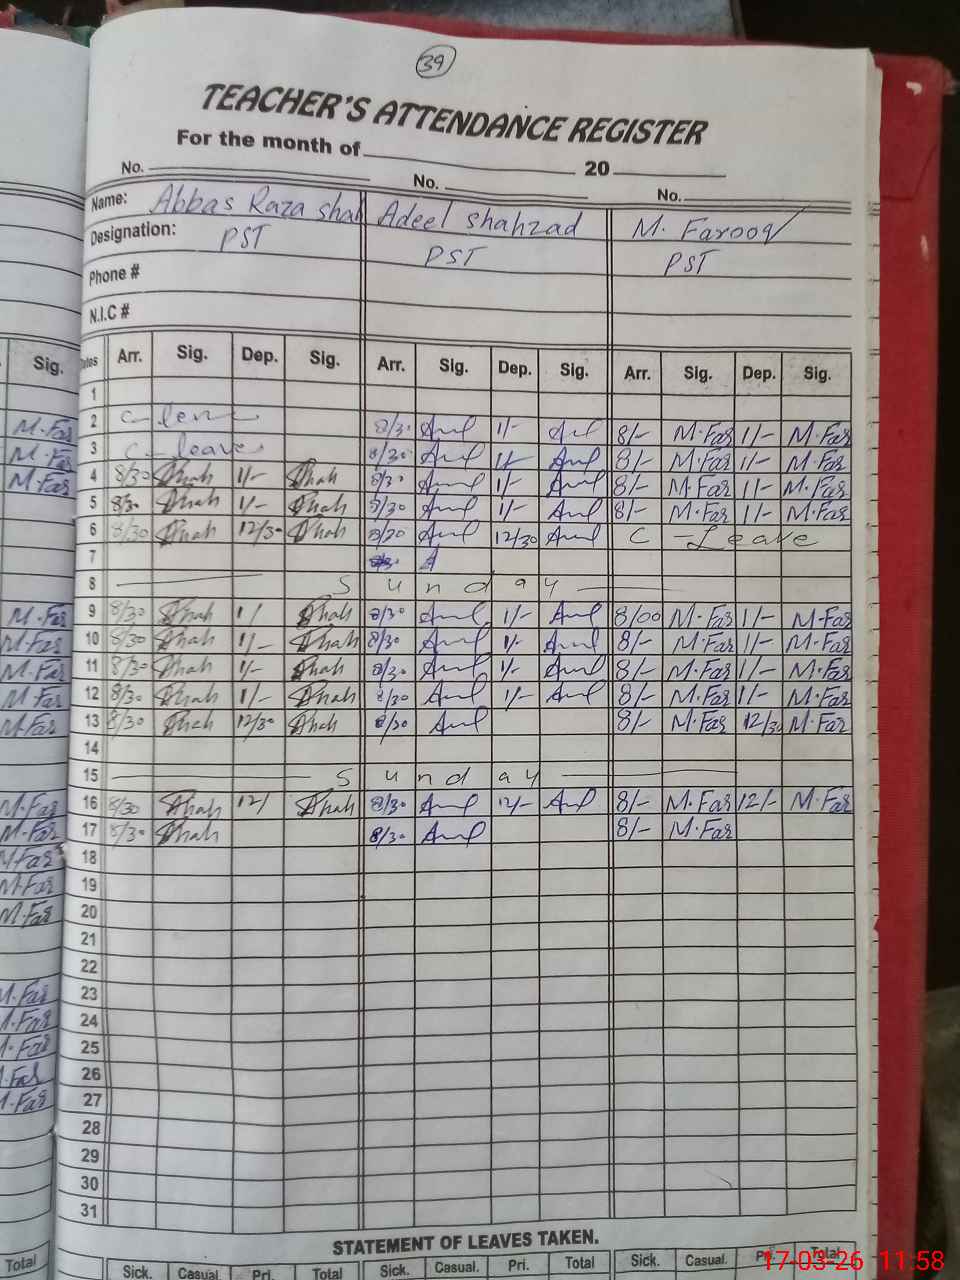 39
TEACHER'S ATTENDANCE REGISTER
For the month of 20
No. No. No.
Name: Abbas Raza shah Adeel shahzad M. Farooq
Designation: PST PST PST
Phone #
N.I.C #
Sig. Dates Arr. Sig. Dep. Sig. Arr. Sig. Dep. Sig. Arr. Sig. Dep. Sig.
1
M.Far 2 C- 8/30 1/- 8/- M.Far 1/- M.Far
M.Far 3 C- leave 8/30 1/- 8/- M.Far 1/- M.Far
M.Far 4 8/30 Shah 1/- Shah 8/30 1/- 8/- M.Far 1/- M.Far
5 8/30 Shah 1/- Shah 8/30 1/- 8/- M.Far 1/- M.Far
6 8/30 Shah 12/30 Shah 12/30 C -Leave
7
8 Sunday
M.Far 9 8/30 Shah 1/ Shah 8/30 1/- 8/00 M.Far 1/- M.Far
M.Far 10 8/30 Shah 1/- Shah 8/30 1/- 8/- M.Far 1/- M.Far
M.Far 11 8/30 Shah 1/- Shah 8/30 1/- 8/- M.Far 1/- M.Far
M.Far 12 8/30 Shah 1/- Shah 8/30 1/- 8/- M.Far 1/- M.Far
M.Far 13 8/30 Shah 12/30 Shah 8/30 8/- M.Far 12/30 M.Far
14
15 Sunday
M.Far 16 8/30 Shah 12/ Shah 8/30 12/- 8/- M.Far 12/- M.Far
M.Far 17 8/30 Shah 8/30 8/- M.Far
M.Far 18
M.Far 19
M.Far 20
21
22
M.Far 23
M.Far 24
M.Far 25
M.Far 26
M.Far 27
28
29
30
31
STATEMENT OF LEAVES TAKEN.
Total Sick. Casual. Pri. Total Sick. Casual. Pri. Total Sick. Casual. Pri. Total
17-03-26 11:58